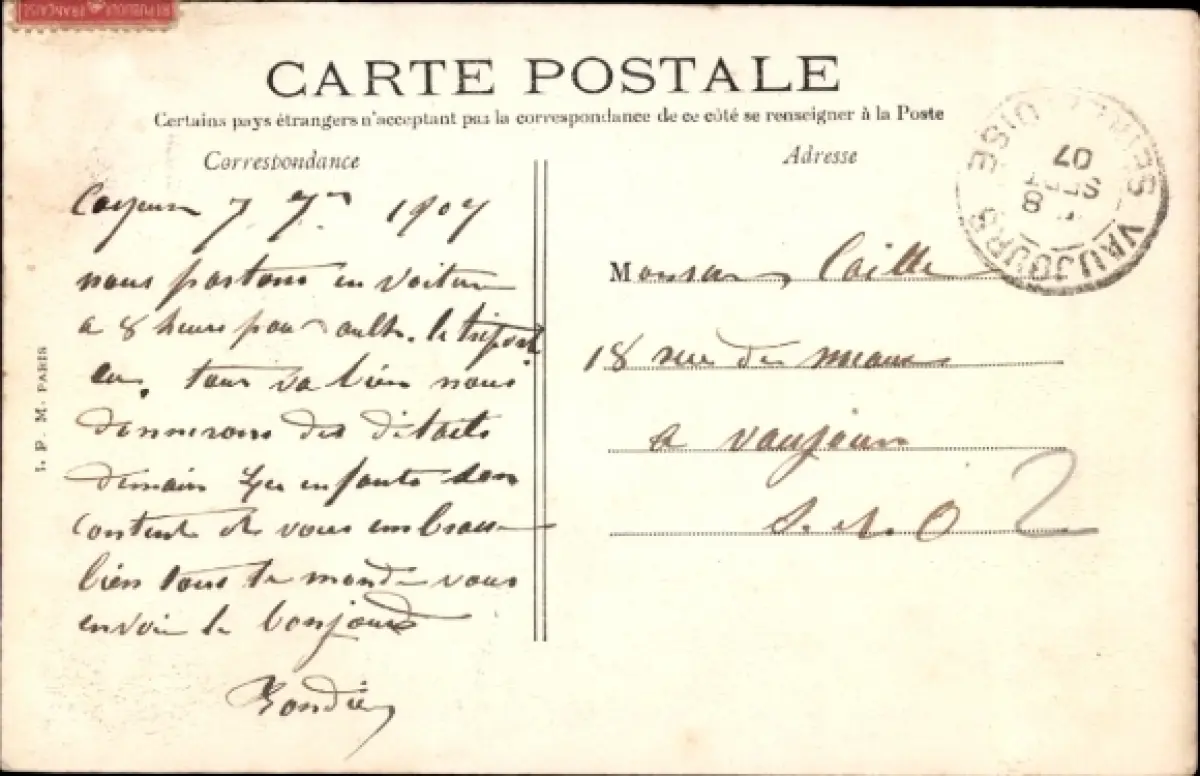 REPUBLIQUE FRANÇAISE
CARTE POSTALE
Certains pays étrangers n'acceptant pas la correspondance de ce côté se renseigner à la Poste
Correspondance
Adresse
Cayeux 7 7re 1907
nous partons en voiture
a 8 heure pour ault. le treport
eu. tous va bien nous
donnerons des détails
demain les enfants son
content et vous embrasse
bien tous le monde vous
envoie le bonjour
Monsieur Caille
18 rue de meaux
a vaujours
S. et O
VAUJOURS
SEINE ET OISE
8
SEPT
07
I. P. M. PARIS